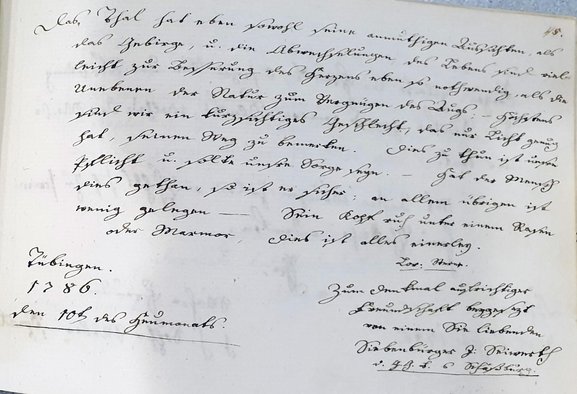 48.
Das Thal hat eben sowohl seine anmuthigen Aussichten, als
das Gebirge, u. die Abwechselungen des Lebens sind viel-
leicht zur Besserung des Herzens eben so nothwendig, als die
Unebenen der Natur zum Vergnügen des Augs — Höchstens
sind wir ein kurzsichtiges Geschlecht, das nur Licht genug
hat, seinen Weg zu bemerken. Dies zu thun ist unsre
Pflicht u. sollte unsre Sorge seyn. — Hat der Mensch
dies gethan, so ist er sicher; an allem übrigen ist
wenig gelegen — Sein Kopf ruh unter einem Rasen
oder Marmor, dies ist alles einerley.
Lor. Stern.
Tübingen.
1786.
den 10t des Heumonats.
Zum Denkmal aufrichtiger
Freundschaft beygesezt
von einem Sie liebenden
Siebenbürger J. Seiwerth
Schäßburg.